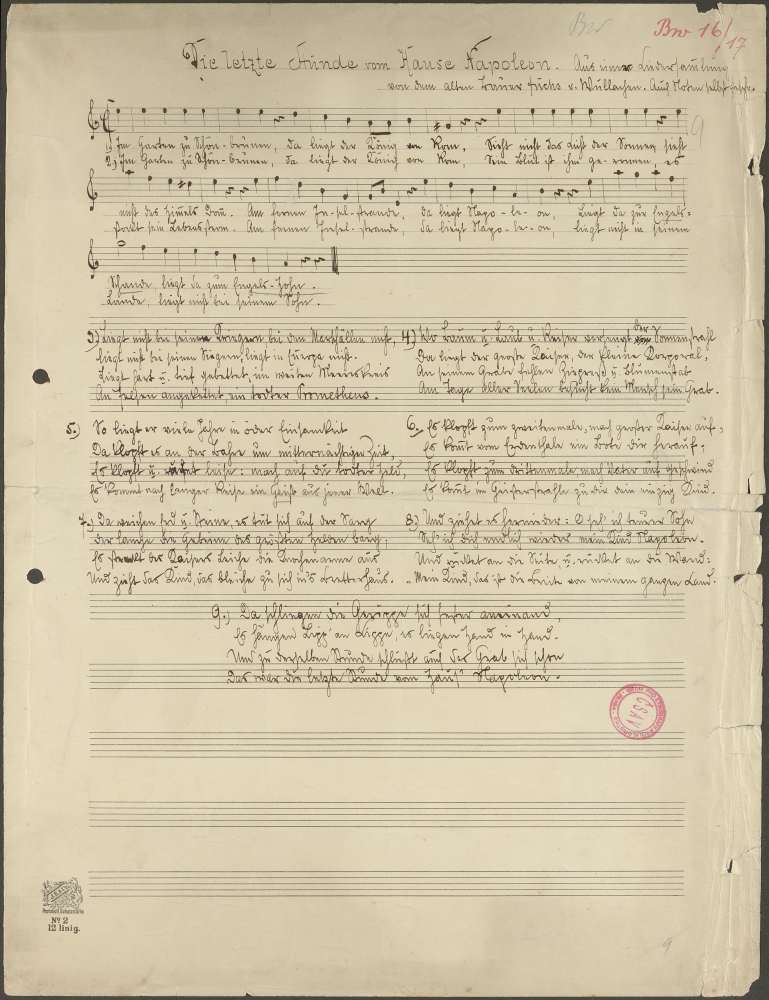 Bw
Bw 16/17
Die letzte Stunde vom Hause Napoleon. Aus einer Liedersammlung
von dem alten Bauer Fuchs v. Wullachen. Auch Noten selbst
1) Im Garten zu Schön-brunnen, da liegt der König von Rom, Sieht nicht das Licht der Sonnen, sieht
2.) Im Garten zu Schön-brunnen, da liegt der König von Rom, Sein Blut ist ihm ge-ronnen, es
nicht des Himmels Dom. Am fernen In-sel-strande, da liegt Napo-le-on, Liegt da zur Engels-
stockt sein Lebensstrom. Am fernen Insel-strande, da liegt Napo-le-on, liegt nicht in seinem
Schande, liegt da zum Engels-Hohn.
Lande, liegt nicht bei seinem Sohn.
3) Liegt nicht bei seinen Kriegern, bei den Marschällen nicht,
liegt nicht bei seinen Siegern, liegt in Europa nicht.
Liegt hart u. tief gebettet, im weiten Meereskreis
An Felsen angekettet ein todter Prometheus.
4.) Wo Baum u. Laub u. Reiser versengt der Sonnenstrahl
Da liegt der große Kaiser, der kleine Korporal,
An seinem Grabe fehlen Zypreß u. Blumenstab
Am Tage aller Seelen besucht kein Mensch sein Grab.
5.) So liegt er viele Jahre in öder Einsamkeit
Da klopft es an der Bahre um mitternächtiger Zeit,
Es klopft u. leise: mach auf du todter Held,
Es kommt nach langer Reise ein Geist aus jener Welt.
6. Es klopft zum zweitenmale, mach großer Kaiser auf,
Es kommt vom Erdenthale ein Bote dir herauf,
Es klopft zum drittenmale mach Vater auf geschwind
Es kommt im Geisterstrahle zu dir dein einzig Kind.
7.) Da weichen Erd u. Steine, es tut sich auf der Sarg
der lange die Gebeine des größten Helden barg,
Es streckt des Kaisers Leiche die Knochenarme aus
Und zieht das Kind, das bleiche zu sich in's Bretterhaus.
8.) Und ziehet es hernieder: O sel' ich teurer Sohn
Seh' ich dich endlich wieder mein Kind Napoleon.
Und rücket an die Seite u. rücket an die Wand:
"Mein Kind, das ist die Breite von meinem ganzen Land.
9.) Da schlingen die Gerippe sich fester aneinand,
Es hängen Lipp' an Lippe, es liegen Hand in Hand.
Und zu derselben Stunde schließt auch das Grab sich schon
Das war die letzte Stunde vom Haus' Napoleon.
No 2
12 linig.
9